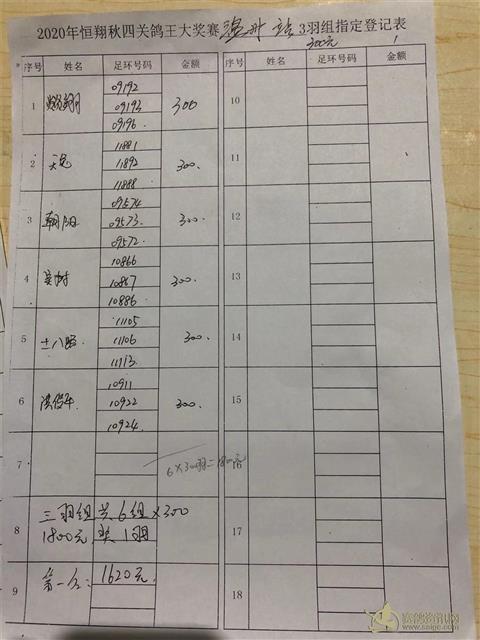 2020年恒翔秋四关鸽王大奖赛温州站3羽组指定登记表
300元
序号 姓名 足环号码 金额 序号 姓名 足环号码 金额
1 翔 09192 09193 09196. 300 10
2 11881 11892 11888 300. 11
3 朝阳 09574 09573. 09572. 300. 12
4 10866 10887 10886 300. 13
5 十八 11105 11106 11113. 300. 14
6 洪 10911 10922 10924. 300. 15
7 16
6×300羽=1800元
8 三羽组共6组×300 17
1800元奖1羽
9 第一名: 1620元. 18
赛鸽资讯网
www.saige.com